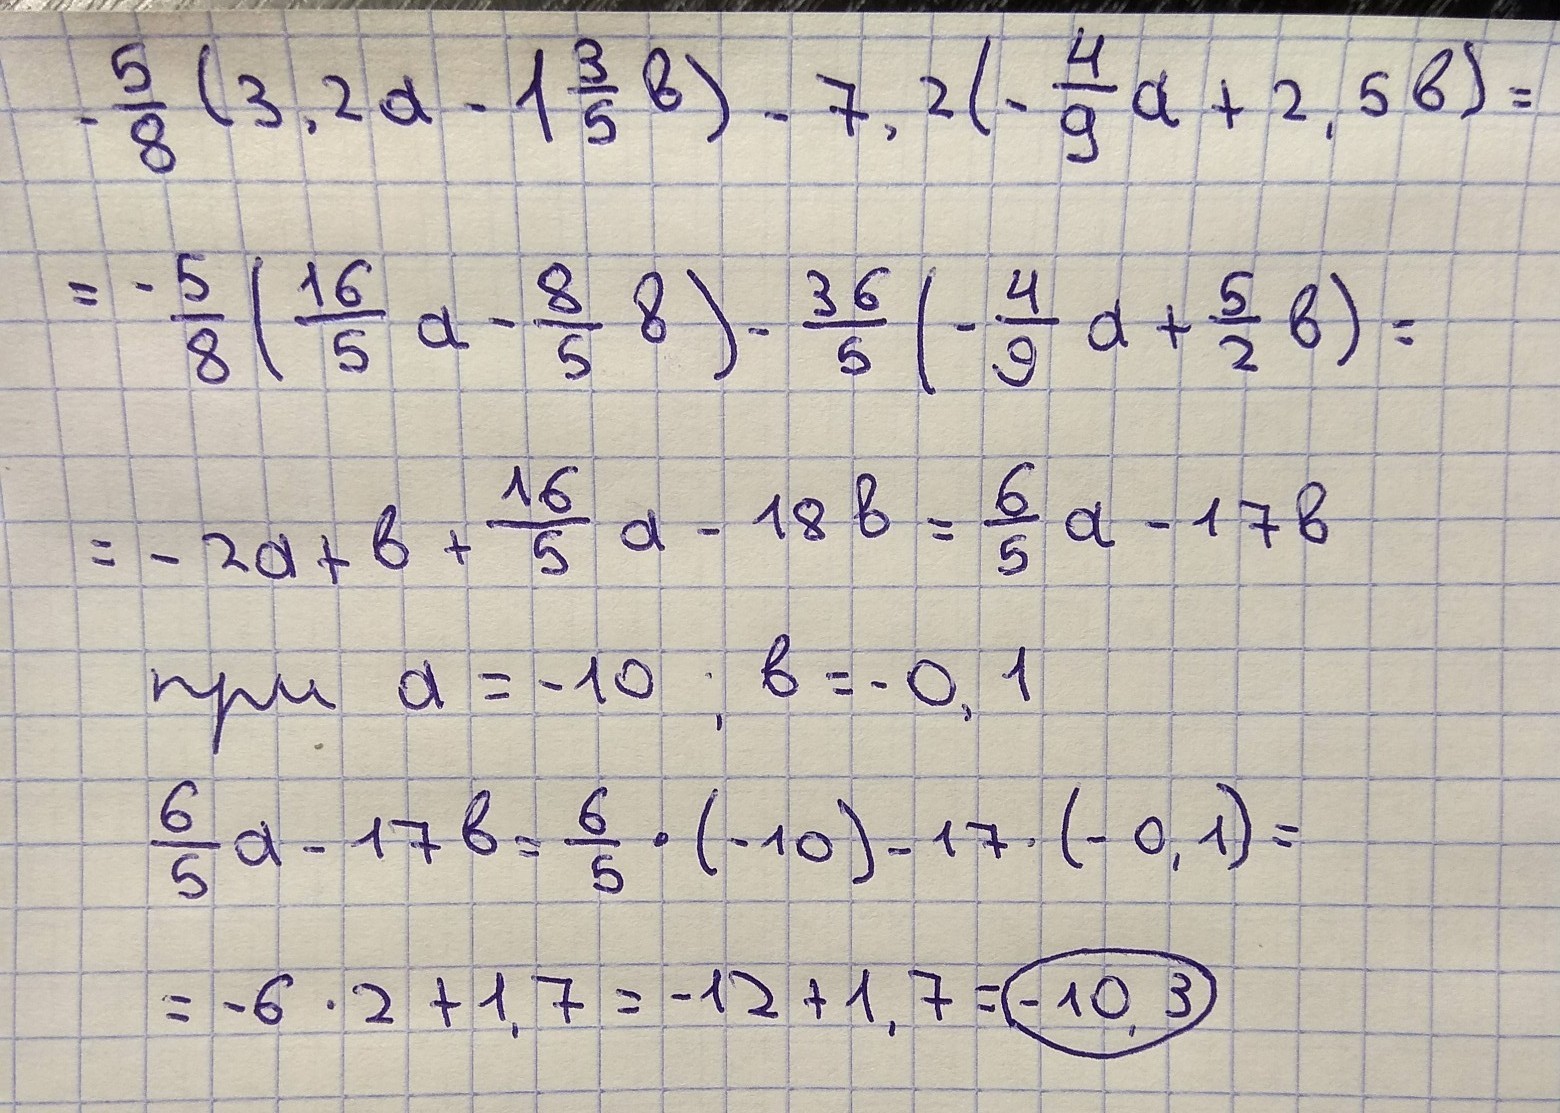 -5/8(3,2a - 1 3/5 в) - 7,2(-4/9 a + 2,5в) =
= -5/8(16/5 a - 8/5 в) - 36/5(-4/9 a + 5/2 в) =
= -2a + в + 16/5 a - 18в = 6/5 a - 17в
при a = -10; в = -0,1
6/5 a - 17в = 6/5 · (-10) - 17 · (-0,1) =
= -6 · 2 + 1,7 = -12 + 1,7 = -10,3